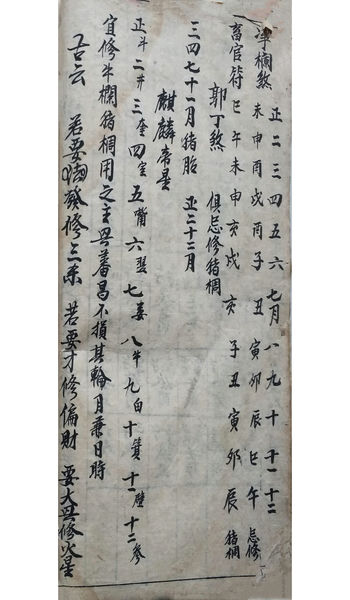 正二三四五六七月八九十十一十二
欄煞 未申酉戌 子丑 寅卯辰巳午 忌修
畜官符 巳午未申 亥戌 亥 子丑寅卯辰 猪椆
郭丁煞 俱忌修猪椆
三四七十一月猪胎 正二十二月
麒麟帝星
正斗二井三奎四室五嘴六翌七婁八牛九白十箕十一壁十二參
宜修牛欄猪椆用之主興蕃昌不損其輪月兼日時
古云 若要 發修三 若要才修偏財 要大興修火星